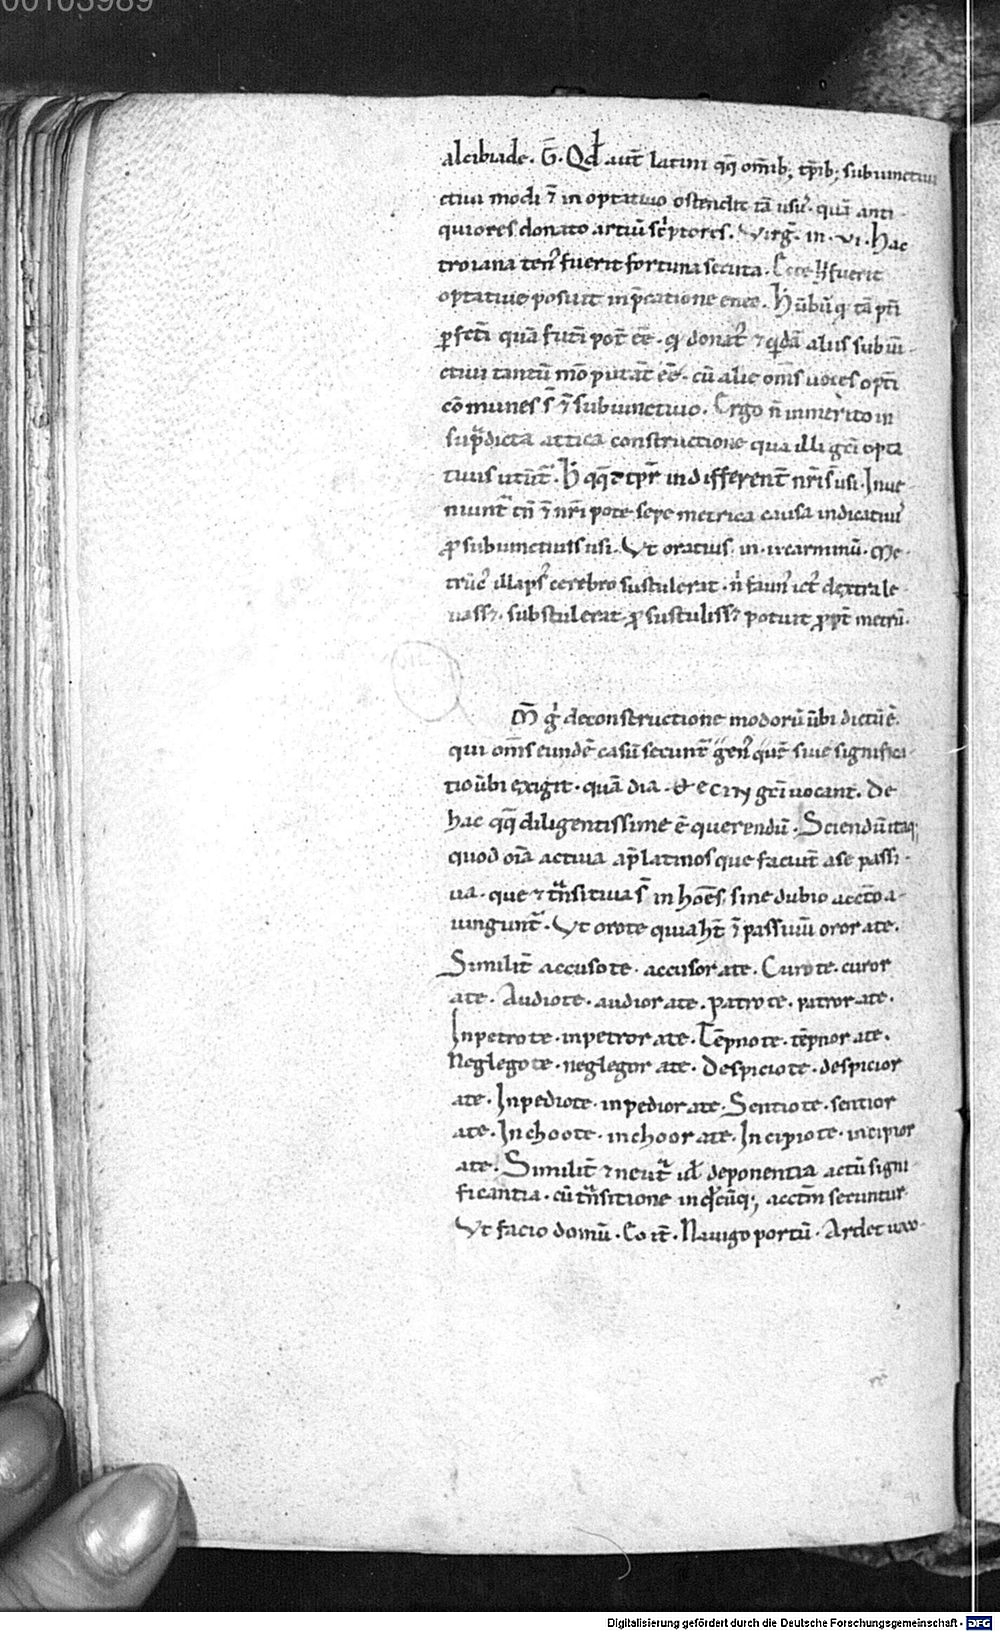 00103989
alcibiade. G̅. Qđ aut̅ latini qq̅ om̅ib; tp̅ib; subiunctiui
ctiui modi ⁊ in optatiuo ostendit ta̅ usu᷒. qua̅ anti
quiores donato artiu̅ sc̅ptores. Virg̅. in. vi. hac
troiana ten᷒ fuerit fortuna secuta. Ecce fuerit
optatiue posuit in p̅catione enee. ta̅ p̅ti
ꝑfecti̅ qua̅ futi̅ pot̅ ee̅. donat᷒ ⁊ qda̅ alii subiu̅
ctiui tantu̅ mo̅ putat̅ ee̅. cu̅ alie om̅s uoces opti̅
co̅munes s̅ ⁊ subiunctiuo. Ergo n̅ inmerito in
sup̅dicta attica constructione qua illi gci̅ opta
tiuis utunt̅. indifferent̅ nr̅i s̅ usi. Inue
niunt̅ tn̅ ⁊ nr̅i poete sepe metrica causa indicatiui᷒
ꝓ subiunctiuis usi. Vt oratius. in. ii carminu̅. Me
tru̅c᷒ illaps᷒ cerebro sustulerat. n̅ faun᷒ ictu᷒ dextra le
uass&. substulerat. ꝓ sustuliss& potuit ꝓpt̅ metru̅.
M̅ g̊ de constructione modoru̅ u̅bi dictu̅ e̅.
qui om̅s eunde̅ casu̅ secunt̅ gen᷒ que̅ siue significa
tio u̅bi exigit. qua̅ dia gci̅ uocant. De
hac qq̅ diligentissime e̅ querendu̅. Sciendu̅ itaq;
quod oi̅a actiua ap̅ latinos que faciu̅t a se passi
ua. que ⁊ tn̅sitiua s̅ in hoe̅s. sine dubio acc̅to a
iungunt̅. Vt oro te quia ht̅ ⁊ passiuu̅ oror a te.
Similit̅ accuso te. accusor a te. Curo te. curor
a te. Audio te. audior a te. patro te. patror a te.
Inpetro te. inpetror a te. Te̅pno te. te̅pnor a te.
Neglego te. neglegor a te. Despicio te. despicior
a te. Inpedio te. inpedior a te. Sentio te. sentior
a te. Inchoo te. inchoor a te. Incipio te. incipior
a te. Similit̅ ⁊ neut̅ ul̅ deponentia actu̅ signi
ficantia. cu̅ tn̅sitione in qc̅u̅q;, acctm̅ secuntur.
Vt facio domu̅. Eo it̅. Nauigo portu̅. Ardet uxo
Digitalisierung gefördert durch die Deutsche Forschungsgemeinschaft - DFG